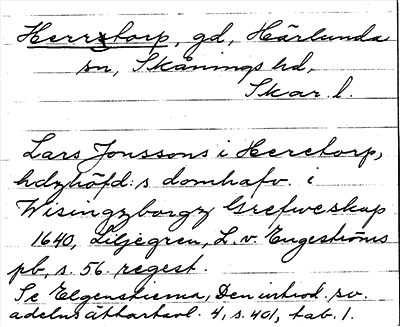 Herrztorp, gd, Härlunda
sn, Skånings hd,
Skar. l.
Lars Jonssons i Herretorp,
hdzhöfd:s domhafv. i
Wisingzborgz Grefweskap
1640, Liljegren, L. v. Engeströms
pb, s. 56. regest.
Se Elgenstierna, Den introd. sv.
adelns ättartavl. 4, s. 401, tab. 1.